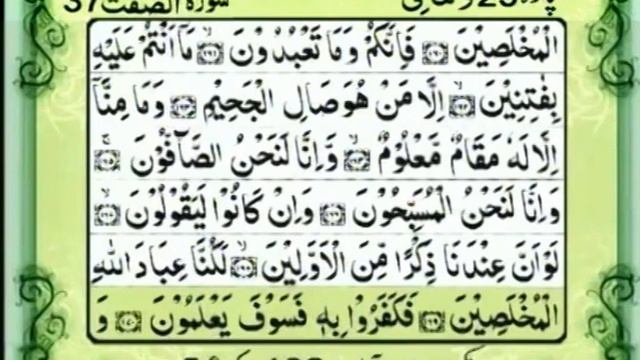 سورة الصفت 37
الْمُخْلَصِيْنَ ﴿١٦٠﴾ فَاِنَّكُمْ وَمَا تَعْبُدُوْنَ ﴿١٦١﴾ مَآ اَنْتُمْ عَلَيْهِ
بِفٰتِنِيْنَ ﴿١٦٢﴾ اِلَّا مَنْ هُوَ صَالِ الْجَحِيْمِ ﴿١٦٣﴾ وَمَا مِنَّآ
اِلَّا لَهٗ مَقَامٌ مَّعْلُوْمٌ ﴿١٦٤﴾ وَّاِنَّا لَنَحْنُ الصَّآفُّوْنَ ﴿١٦٥﴾
وَاِنَّا لَنَحْنُ الْمُسَبِّحُوْنَ ﴿١٦٦﴾ وَاِنْ كَانُوْا لَيَقُوْلُوْنَ ﴿١٦٧﴾
لَوْ اَنَّ عِنْدَنَا ذِكْرًا مِّنَ الْاَوَّلِيْنَ ﴿١٦٨﴾ لَكُنَّا عِبَادَ اللّٰهِ
الْمُخْلَصِيْنَ ﴿١٦٩﴾ فَكَفَرُوْا بِهٖ فَسَوْفَ يَعْلَمُوْنَ ﴿١٧٠﴾ وَ